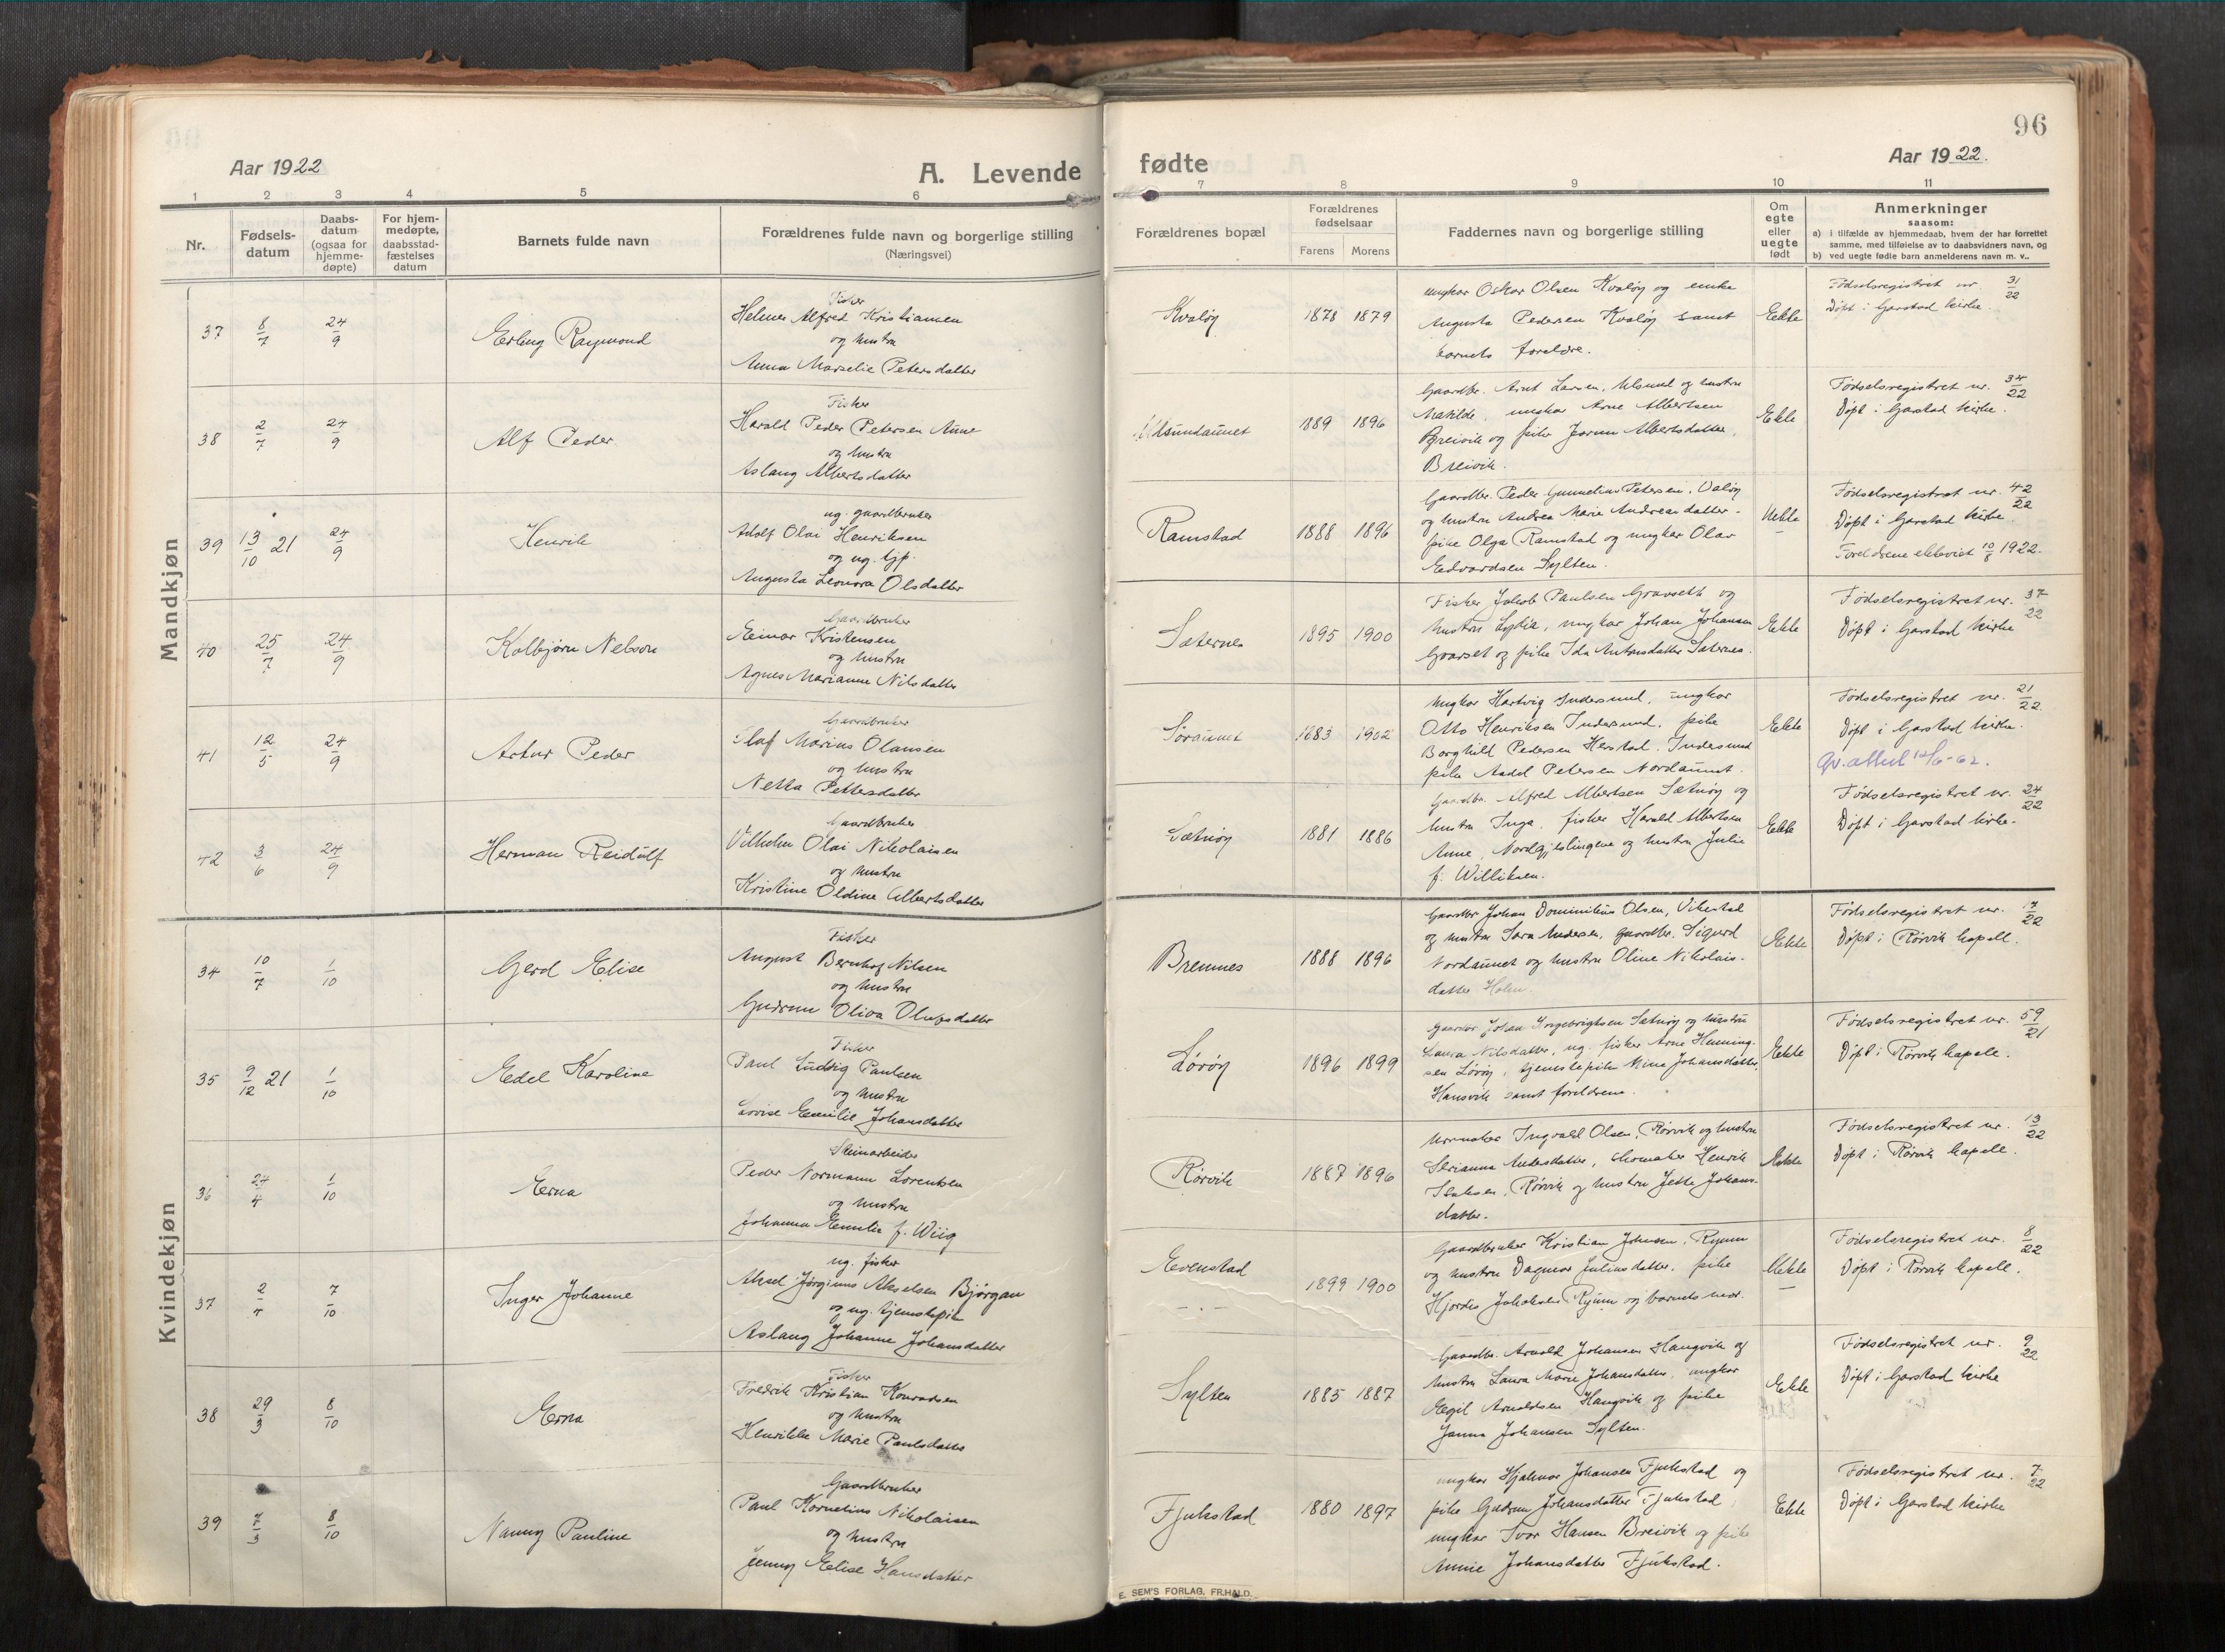 96
Aar 1922
A. Levende
fødte
Aar 1922.
1 2 3 4 5 6 7 8 9 10 11
Nr.
Fødsels-
datum
Daabs-
datum
(ogsaa for
hjemme-
døpte)
For hjem-
medøpte,
daabsstad-
fæstelses
datum
Barnets fulde navn
Forældrenes fulde navn og borgerlige stilling
(Næringsvei)
Forældrenes bopæl
Forældrenes
fødselsaar
Farens Morens
Faddernes navn og borgerlige stilling
Om
egte
eller
uegte
født
Anmerkninger
saasom:
a) i tilfælde av hjemmedaab, hvem der har forrettet
samme, med tilføielse av to daabsvidners navn, og
b) ved uegte fødte barn anmelderens navn m. v..
Mandkjøn
37 8/7 24/9 Erling Raymond
Fisker
Helmer Alfred Kristiansen
og hustru
Anna Marselie Petersdatter
Kvaløy 1878 1879
ungkar Oskar Olsen Kvaløy og enke
Augusta Pedersen Kvaløy samt
barnets foreldre.
Ekte
Fødselsregistret nr. 31/22
Døpt i Garstad kirke.
38 2/7 24/9 Alf Peder
Fisker
Harald Peder Petersen Aune
og hustru
Aslaug Albertsdatter
1889 1896
Gaardbr. Arnt Larsen, Ulsund og hustru
Matilde, ungkar Arne Albertsen
Breivik og pike Jorun Albertsdatter,
Breivik.
Ekte
Fødselsregistret nr. 34/22
Døpt i Garstad kirke.
39 13/10 21 24/9 Henrik
ug. gaardbruker
Adolf Olai Henriksen
og ug. tjp.
Augusta Leonora Olsdatter
Ramstad 1888 1896
Gaardbr. Peder Gunnelius Petersen, Valøy
og hustru Andrea Marie Andreasdatter.
pike Olga Ramstad og ungkar Olav
Edvardsen Sylten.
Uekte
Fødselsregistret nr. 42/22
Døpt i Garstad kirke.
Foreldrene ekteviet 10/8 1922.
40 25/7 24/9 Kolbjørn Nelson
Gaardbruker
Einar Kristensen
og hustru
Agnes Marianne Nilsdatter
Sæternes 1895 1900
Fisker Jakob Paulsen Gravseth og
hustru Lydia, ungkar Johan Johansen
Gravset og pike Ida Antonsdatter Sæternes.
Ekte
Fødselsregistret nr. 37/22
Døpt i Garstad kirke
41 12/5 24/9 Artur Peder
Gaardbruker
Olaf Marius Olausen
og hustru
Netta Pettersdatter
Søraunet 1883 1902
ungkar Hartvig Indersund, ungkar
Otto Henriksen Indersund, pike
Borghild Pedersen Herstad, Indersund
pike Aadel Petersen Nordaunet.
Ekte
Fødselsregistret nr. 21/22
Døpt i Garstad kirke.
Ny attest 12/6-62.
42 3/6 24/9 Herman Reidulf
Gaardbruker
Vilhelm Olai Nikolaisen
og hustru
Kristine Oldine Albertsdatter
Sætnøy 1881 1886
Gaardbr. Alfred Albertsen Sætnøy og
hustru Inga, fisker Harald Albertsen
Aune, Nordgjeslingene og hustru Julie
f. Williksen.
Ekte
Fødselsregistret nr. 24/22
Døpt i Garstad kirke.
Kvindekjøn
34 10/7 1/10 Gerd Elise
Fisker
August Bernhof Nilsen
og hustru
Gudrun Oliva Olufsdatter
Bremnes 1888 1896
Gaardbr Johan Dominikus Olsen, Vikestad
og hustru Sara Andersen, gaardbr. Sigurd
Nordaunet og hustru Oline Nikolais-
datter Holm.
Ekte
Fødselsregistret nr. 17/22
Døpt i Rørvik kapell.
35 9/12 21 1/10 Edel Karoline
Fisker
Paul Ludvig Paulsen
og hustru
Lovise Emilie Johansdatter
Lørøy 1896 1899
Gaardbr Johan Ingebrigtsen Sætnøy og hustru
Laura Nilsdatter, ug. fisker Arne Henning-
sen Lørøy, tjenestepike Mina Johansdatter,
Hansvik samt foreldrene.
Ekte
Fødselsregistret nr. 59/21
Døpt i Rørvik kapell.
36 24/4 1/10 Erna
Steinarbeider
Peder Normann Lorentsen
og hustru
Johanna Emilie f. Wiig
Rørvik 1887 1896
Urmaker Ingvald Olsen, Rørvik og hustru
Andersdatter, skomaker Henrik
Isaksen, Rørvik og hustru Jette Johans-
datter.
Ekte
Fødselsregistret nr. 13/22
Døpt i Rørvik kapell.
37 2/4 7/10 Inger Johanne
ug. fisker
Aksel Jørginus Akselsen Bjørgan
og ug. tjenestepike
Aslaug Johanne Johansdatter
Evenstad
- " - 1899 1900
Gaardbruker Kristian Johnsen, Ryum
og hustru Dagmar Juliusdatter, pike
Hjordis Ryum og barnets mor.
Uekte
Fødselsregistret nr. 8/22
Døpt i Rørvik kapell.
38 29/3 8/10 Erna
Fisker
Fredrik Kristian Konradsen
og hustru
Henrikke Marie Paulsdatter
Sylten 1885 1887
Gaardbr. Arnold Johansen Haugvik og
hustru Laura Marie Johansdatter, ungkar
Egil Arnoldsen Haugvik og pike
Janna Johansen Sylten.
Ekte
Fødselsregistret nr. 9/22
Døpt i Garstad kirke
39 7/3 8/10 Nanny Pauline
Gaardbruker
Paul Kornelius Nikolaisen
og hustru
Jenny Elise Hansdatter
Fjukstad 1880 1897
ungkar Hjalmar Johansen Fjukstad og
pike Gudrun Johansdatter Fjukstad,
ungkar Ivar Hansen Breivik og pike
Annie Johansdatter Fjukstad.
Ekte
Fødselsregistret nr. 7/22
Døpt i Garstad kirke
E. SEM'S FORLAG, FR.HALD.